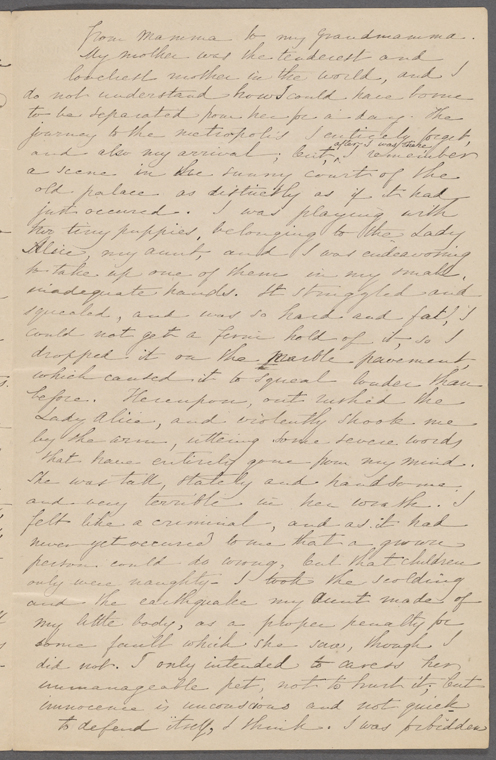 from Mamma to my grandmamma.
My mother was the tenderest and
loveliest mother in the world, and I
do not understand how I could have borne
to be separated from her for a day. The
journey to the metropolis I entirely forget,
and also my arrival; but, after I was there, I remember
a scene in the sunny court of the
old palace as distinctly as if it had
just occured. I was playing with
two tiny puppies, belonging to the Lady
Alice, my aunt, and I was endeavoring
to take up one of them in my small,
inadequate hands. It struggled and
squealed, and was so hard and fat, I
could not get a firm hold of it, so I
dropped it on the marble pavement,
which caused it to squeal louder than
before. Hereupon, out rushed the
Lady Alice, and violently shook me
by the arm, uttering some severe words
that have entirely gone from my mind.
She was tall, stately and handsome
and very terrible in her wrath. I
felt like a criminal, and as it had
never yet occured to me that a grown
person could do wrong, but that children
only were naughty- I took the scolding
and the earthquake my Aunt made of
my little body, as a proper penalty for
some fault which she saw, though I
did not. I only intended to caress her
unmanageable pet, not to hurt it; but
innocence is unconscious and not quick
to defend itself, I think. I was forbidden